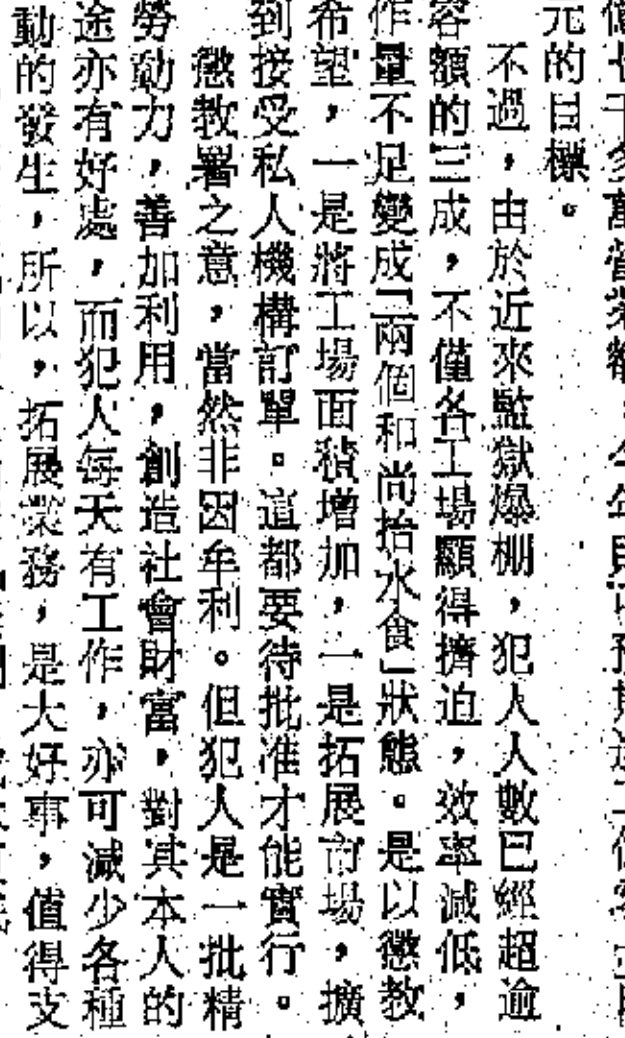 億七千多萬營業額，今年則
元的目標。
不過，由於近來監獄爆棚，犯人人數已經超逾
容額的三成，不僅各工場顯得擠迫，效率減低，
作量不足變成「兩個和尚抬水食」狀態。是以懲教
希望，一是將工場面積增加，一是拓展市場，擴
到接受私人機構訂單。這都要待批准才能實行。
懲教署之意，當然非因牟利。但犯人是一批精
勞動力，善加利用，創造社會財富，對其本人的
途亦有好處，而犯人每天有工作，亦可減少各種
動的發生，所以，拓展業務，是大好事，值得支